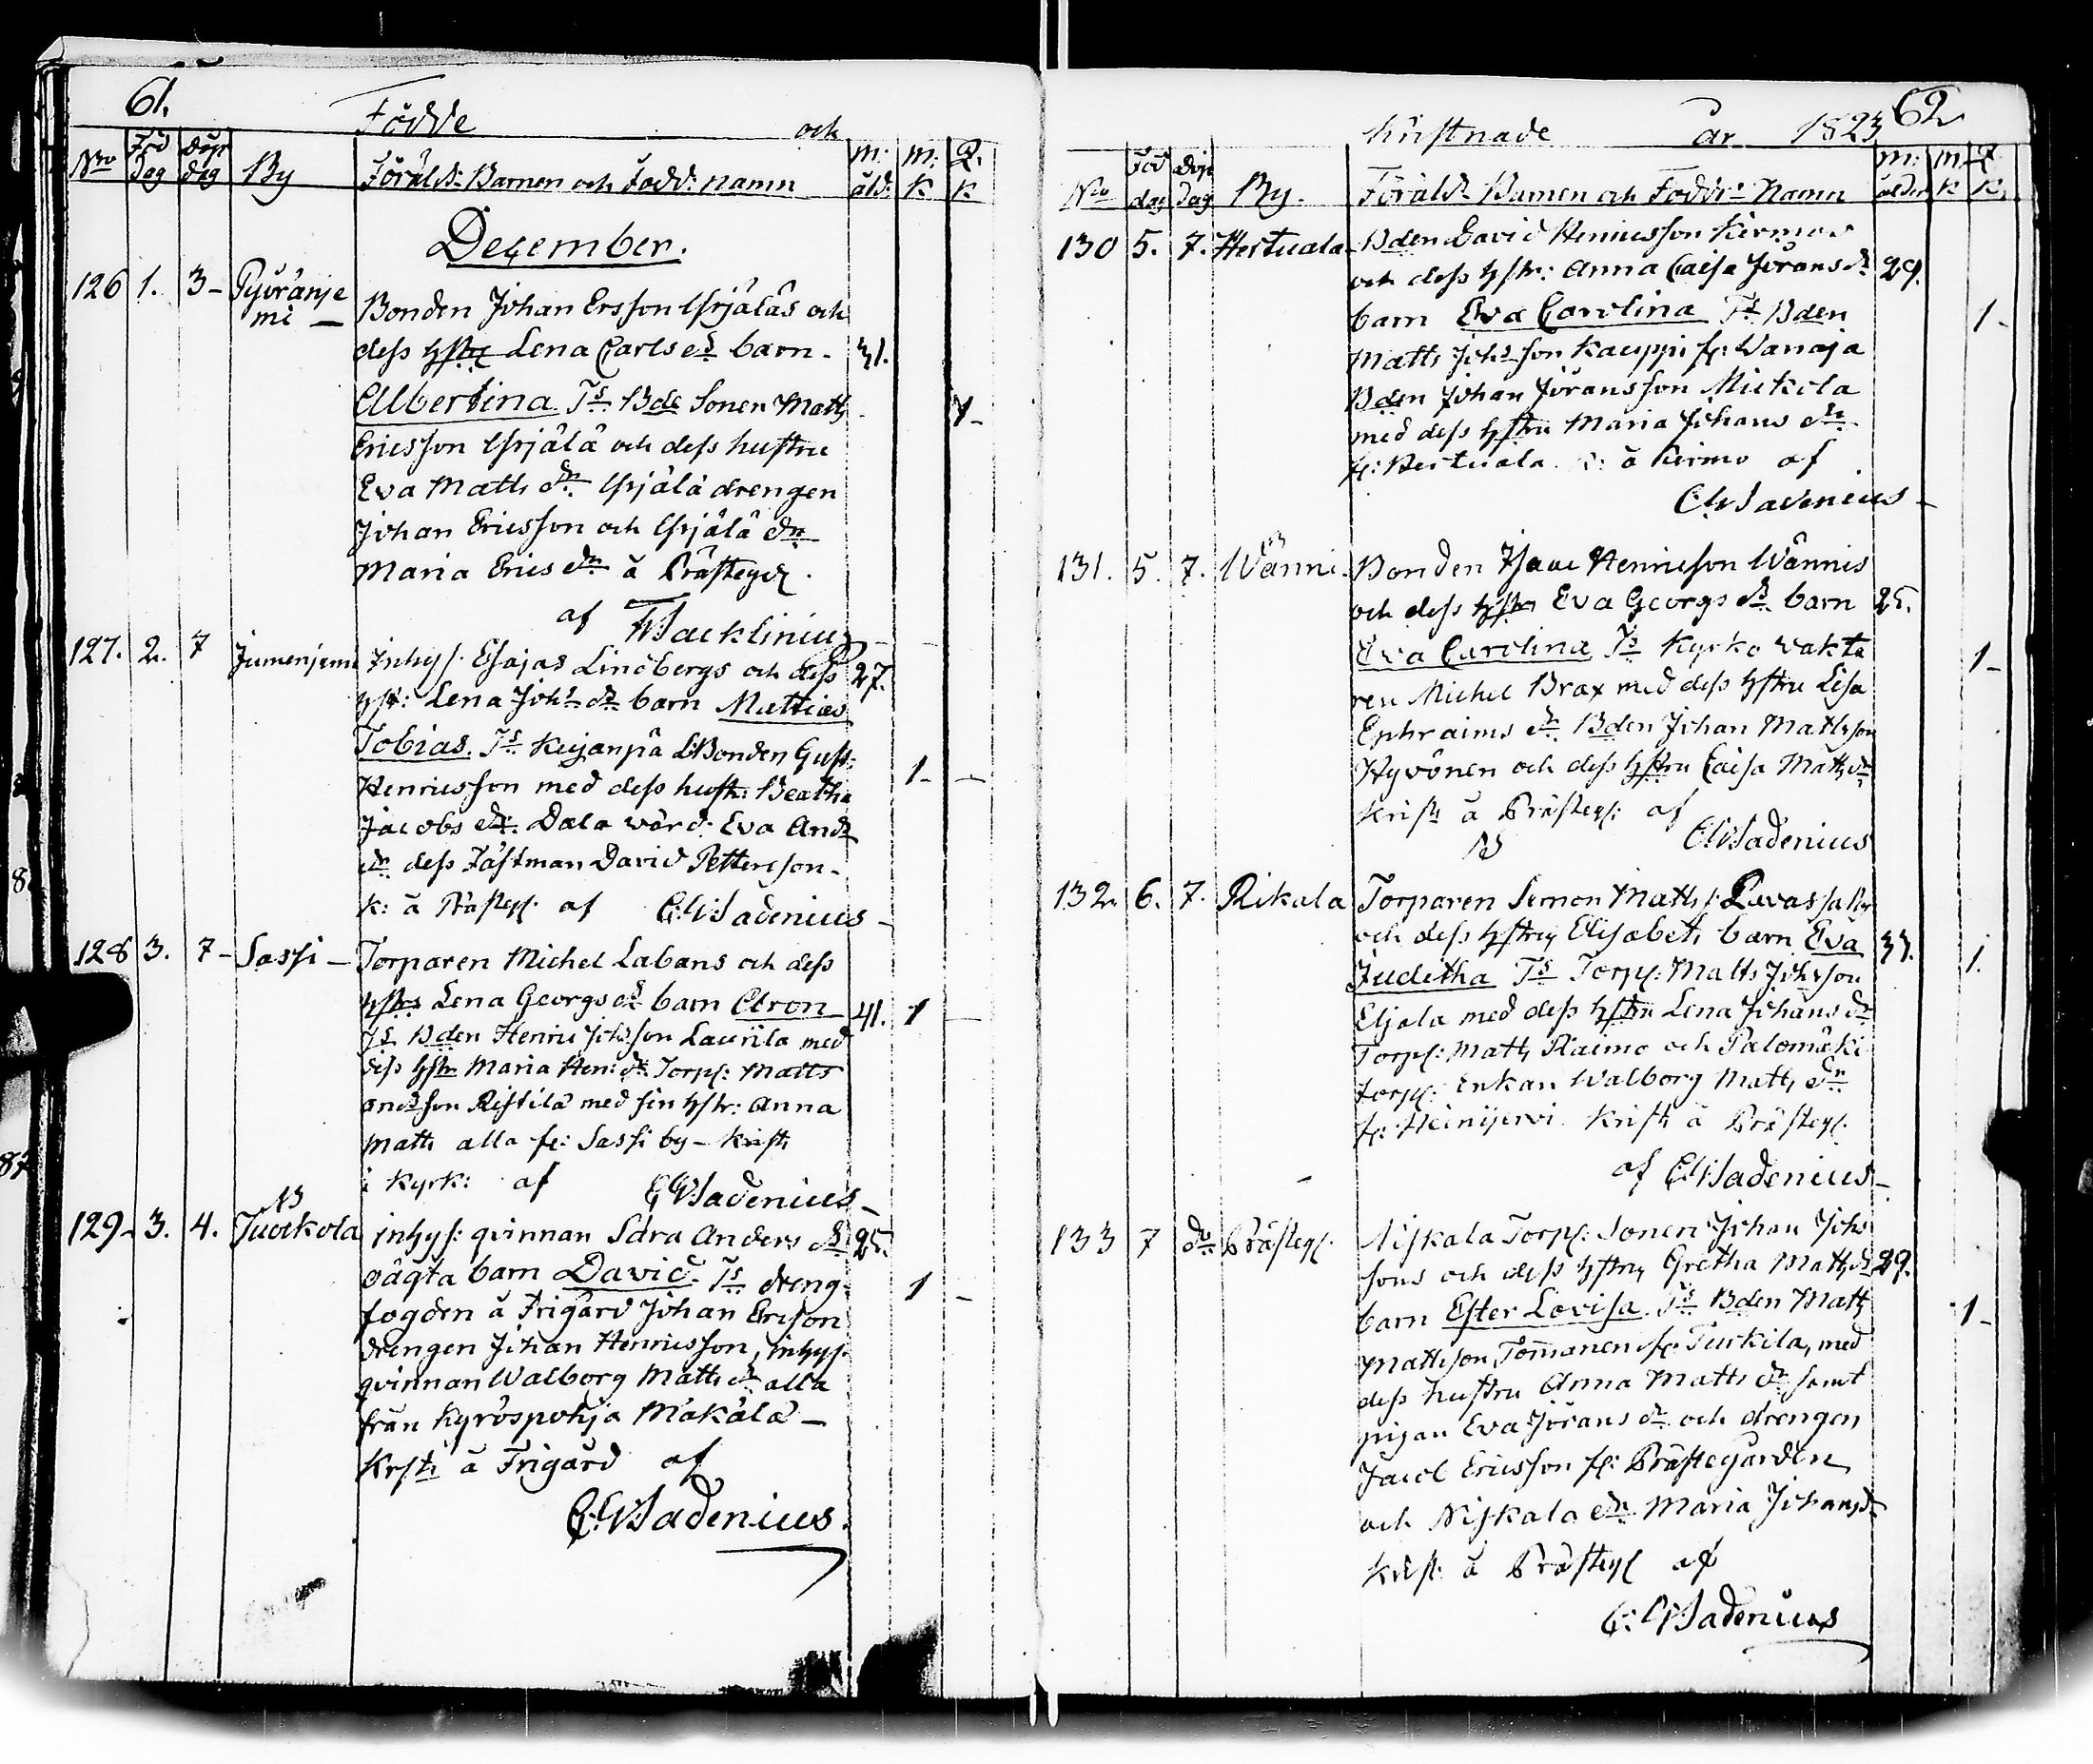 61.
Födde och
Nro Föd Dag Döpt dag By Föräld: Barnen och Fadd: namn m: åld: M: K Q. K
December.
126 1. 3- Pyöränje
mi - Bonden Johan Ersson Yrjäläs och
dess hstru Lena Carls dr barn - 31.
Albertina Ts Bde Sonen Matts 1-
Ericsson Yrjälä och dess hustru
Eva Matts dr. Yrjälä drengen
Johan Ericsson och Yrjälä dr
Maria Erics dr å Prästeg:
af Backlinius
127. 2. 7 Jumenjemi Inhys: Esajas Lindbergs och dess 27.
hst: Lena Joh: dr barn Mattias
Tobias. Ts Kujanpä LBonden Gust:
Henricsson med dess hust: Beatha 1-
Jacobs dr: Dala värd: Eva And
dr dess Fästman David Petterson -
K: å Prästeg: af C:G:Sadenius -
128 3. 7- Sassi - Torparen Michel Labans och dess
hstrs Lena Georgs dr barn Aron 41. 1
Ts Bden Henric Johsson Laurila med
dess hstr Maria Hen: dr. Torp: Matts
Andsson Ristilä med sin hstr: Anna
Matts alla fr: Sassi by - Kristt
i Kyrk: af Sadenius -
NB
129- 3. 4. Tuokkola inhys: qvinnan Sara Anders dr 25.
oägta barn David. Ts dreng- 1 -
fogden å Frigård Johan Ericson
drengen Johan Henricsson, inhys:
qvinnan Walborg Matts dr alla
från Kyröspohja Mäkälä -
Krstt å Frigård af
Sadenius.
62
Christnade år 1823
Nro Föd dag Döp Dag By. Föräld: Barnen och Faddr: Namn m: ålder M K Q K
130 5. 7. Hertuala Bden David Henricsson Kirmos
och dess hstr: Anna Caisa Jörans dr 29.
barn Eva Carolina Ts Bden 1-
Matts Johsson Kauppi fr: Wanaja
Bden Johan Jöransson Mickola
med dess hstru Maria Johans dr
fr: Hertuala å Kirmo af
Sadenius -
131. 5. 7. Wänni - Bonden Isaac Henricson Wännis
och dess hstru Eva Georgs dr. barn 25.
Eva Carolina Ts Kyrko vakta 1-
ren Michel Brax med dess hstru Lisa
Ephraims dr Bden Johan Mattsson
Hyvönen och dess hstru Caisa Matts dr
Krist å Prästeg: af
Sadenius
132. 6. 7. Rikala Torparen Semon Matts:
och dess hstru Elisabets barn Eva 33.
Juditha Ts Torp: Matts Johsson 1.
Eljala med dess hstru Lena Johans dr
Torp: Matts Raimo och Palomäki
Torp: Enkan Walborg Matts dr
fr: Heinijervi Krist å Prästeg:
af Sadenius -
133 7 do Prästeg: Niskala Torp: Sonen Johan Johs
sons och dess hstru Gretha Matts dr 29.
barn Ester Lovisa. Ts Bden Matts 1-
Mattsson, Tommanen fr: Turkila, med
dess hustru Anna Matts dr samt
pigan Eva Jörans dr och drengen
Jacob Ericsson fr: Prästegården
och Niskala dr Maria Johansd:
Krist: å Prästeg af
Sadenius